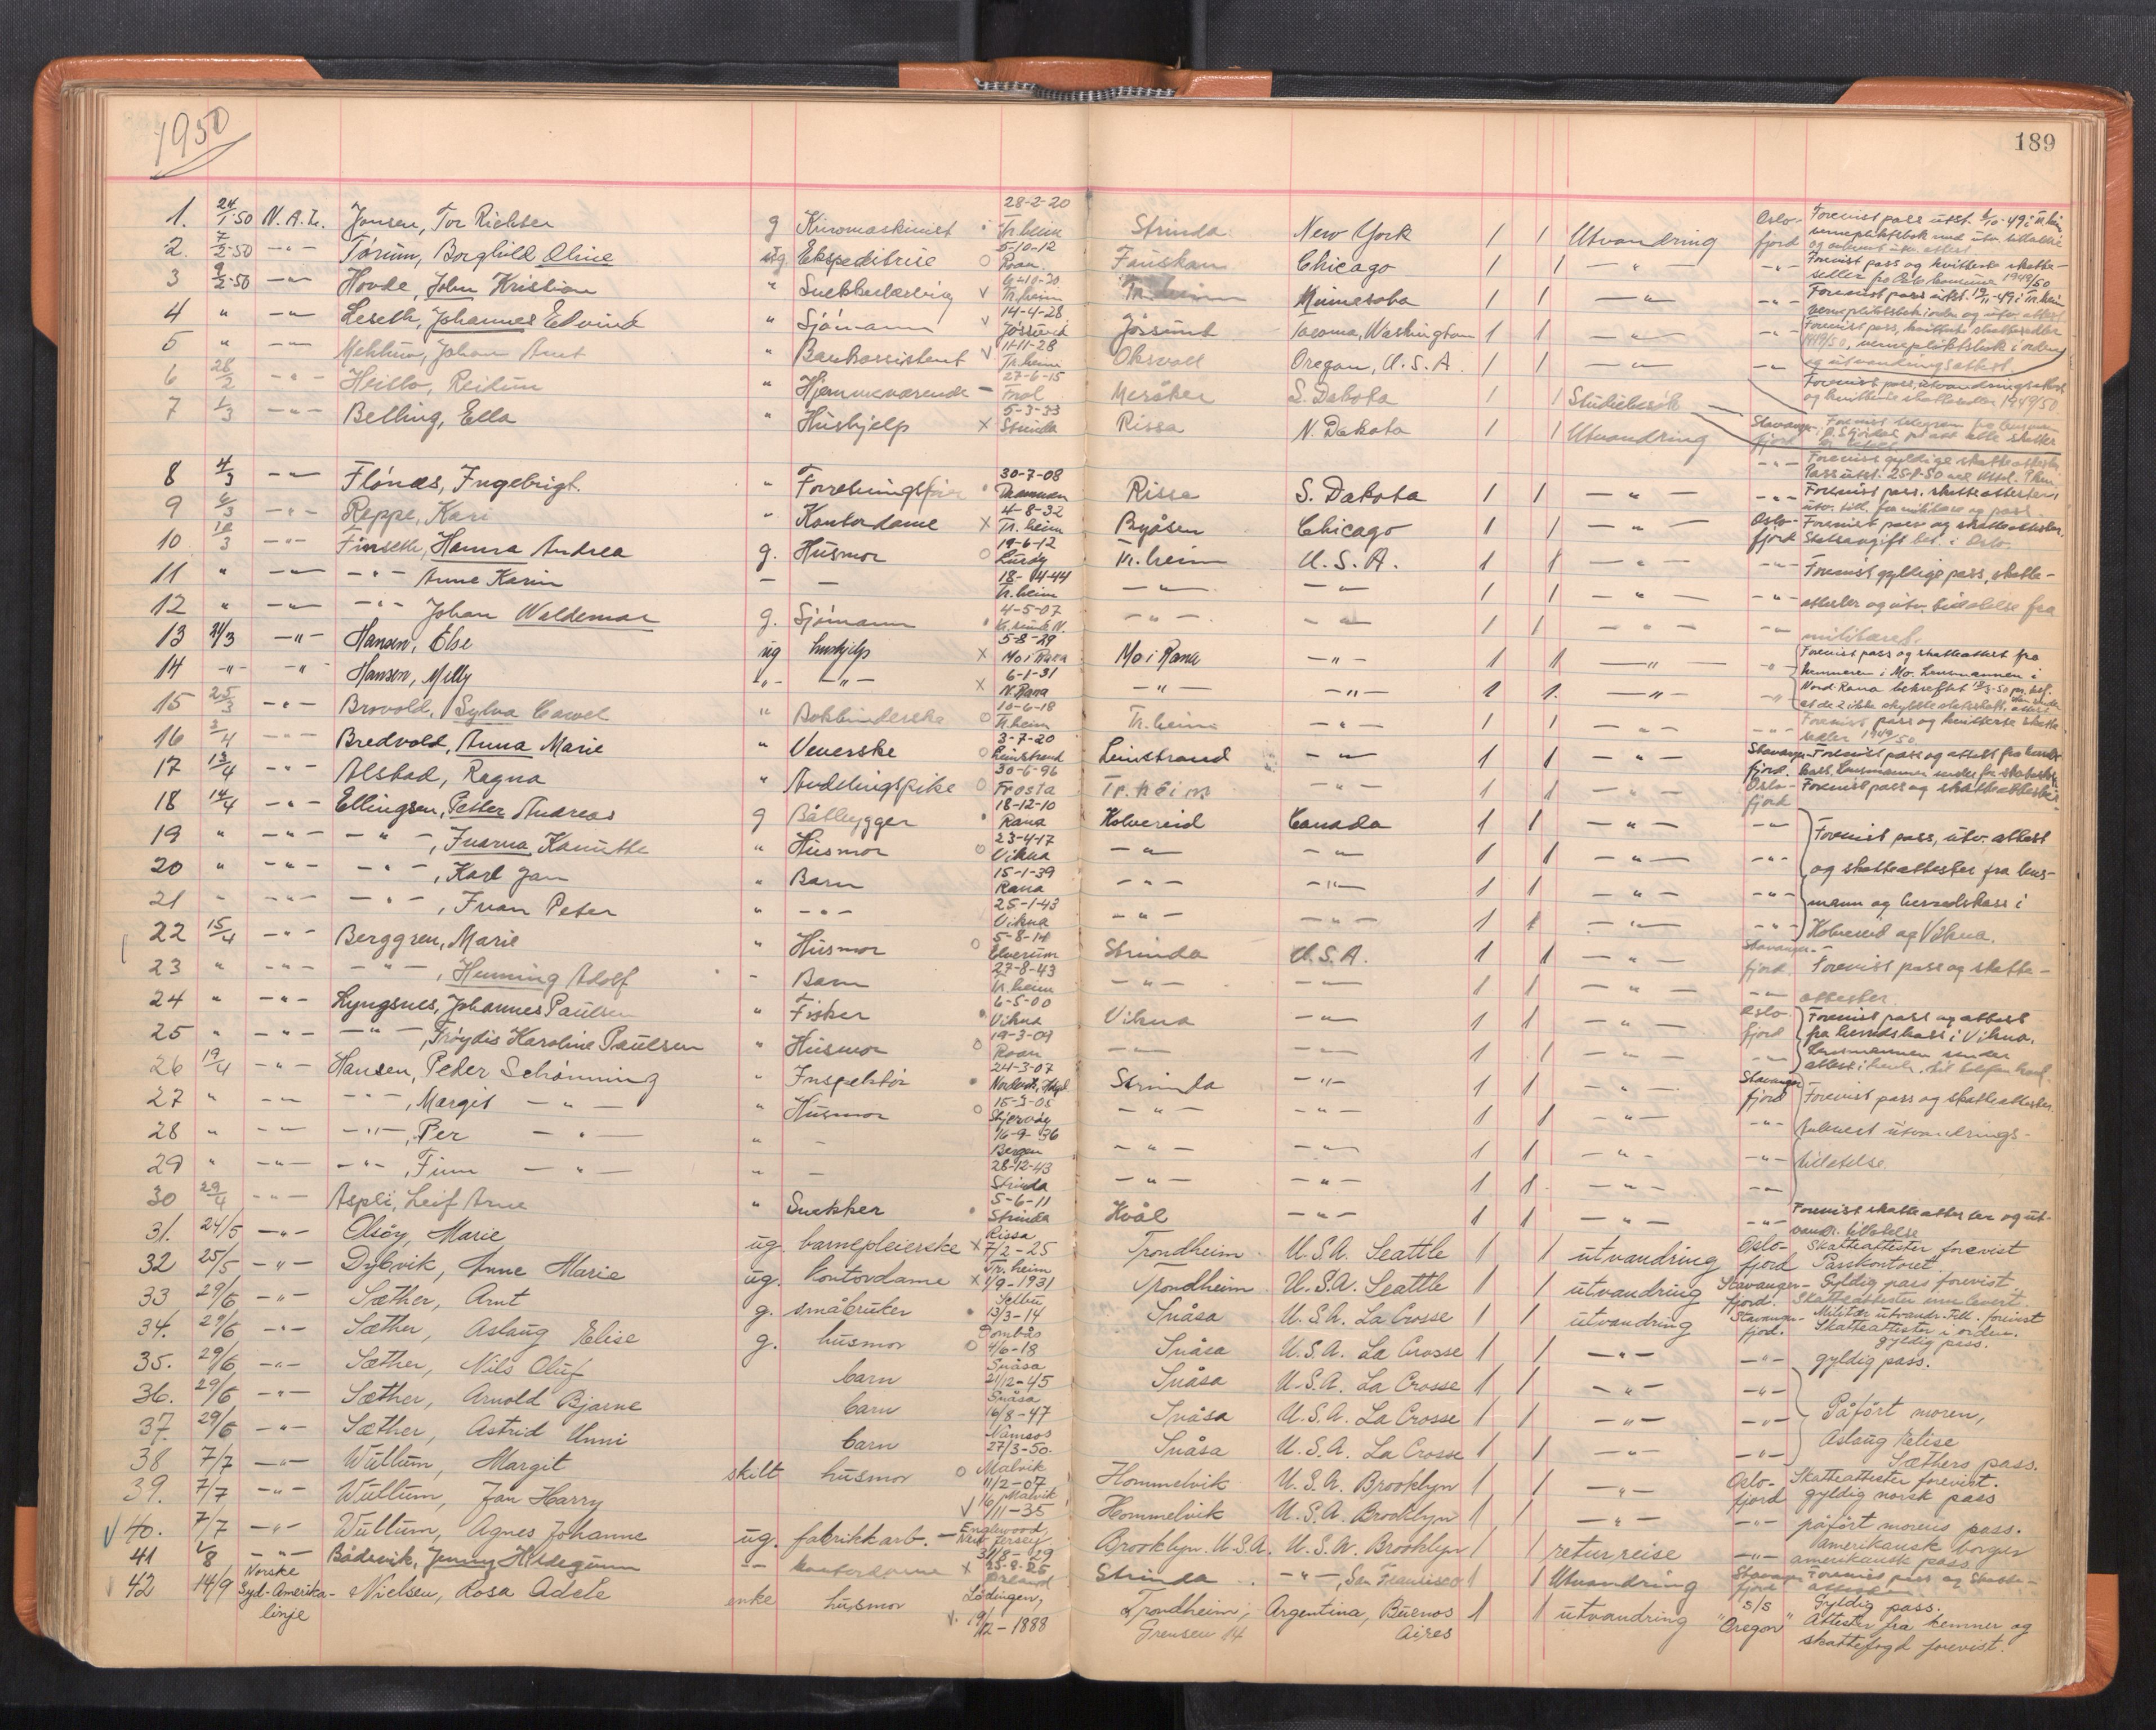 1950
189
1. 24/1-50 N.A.L. Jonsen, Tor Richter g Kinomaskinist 28-2-20 Tr.heim Strinda New York 1 1 Utvandring Oslofjord Forevist pass utst. i Tr.heim
2. 7/2-50 -"- Tørum, Borghild Oline ug. Ekspeditrise 5-10-12 Roan Chicago 1 1 -"- -"- Forevist pass og kvitterte skatte-
3 9/2-50 -"- Hovde, John Kristian " v Tr.heim Tr.heim Minnesota 1 1 -"- -"- Forevist pass utst.
4 " -"- Leseth, Johannes Edvind " Sjømann v 14-4-28 Jøssund Jøssund Tacoma, Washington 1 1 -"- -"- Forevist pass, kvitterte skattesedler 1949/50, vernepliktsbok i orden
5 " -"- Johan Arnt " Bankassistent v 11-11-28 Tr.heim Oregon, U.S.A. 1 1 -"- -"- og utvandringsattest.
6 28/2 -"- Heitlo, Reidun " Hjemmeværende - 27-6-15 Frol Meråker S. Dakota 1 1 Studiebesøk Forevist pass, utvandringsattest og kvitterte skattesedler 1949/50
7 1/3 -"- Belling, Ella " Hushjelp x 5-3-33 Strinda Rissa N. Dakota 1 1 Utvandring Stavangerfjord
8 4/3 -"- Flønes, Ingebrigt. " 30-7-08 Rissa S. Dakota 1 1 -"- -"- Forevist gyldige skatteattester,
9 6/3 -"- Reppe, Kari " Kontordame x 4-8-32 Tr.heim Byåsen Chicago 1 1 -"- -"- Forevist pass, skatteattester,
10 10/3 -"- Finseth, Hanna Andrea g. Husmor o 19-6-12 Lurøy Tr.heim U.S.A. 1 1 -"- Oslofjord Forevist pass og skatteattester.
11 " -"- -"- Anne Karin - - 18-4-44 Tr.heim -"- -"- 1 1 -"- -"- Forevist gyldige pass, skatte-
12 " -"- -"- Johan Waldemar g. Sjømann 4-5-07 Kr.sund N. -"- -"- 1 1 -"- -"- attester og utv. tillatelse fra militæret.
13 21/3 -"- Hansen, Else ug hushjelp x 5-8-29 Mo i Rana Mo i Rana -"- 1 1 -"- -"- Forevist pass og skatteattest fra
14 -"- -"- Hansen, Milly -"- -"- x 6-1-31 N. Rana -"- -"- 1 1. -"- -"- kemneren i Mo. Lensmannen i Nord-Rana bekreftet
15 25/3 -"- Brovold, Sylva " Bokbinderske o 10-6-18 Tr.heim Tr.heim -"- 1 1 -"- -"- Forevist pass og kvitterte skattesedler 1949/50
16 3/4 -"- Bredvold, Anna Marie " Veverske o 3-7-20 Leinstrand Leinstrand -"- 1 1 -"- Stavangerfjord. Forevist pass og attest fra
17 13/4 -"- Alstad, Ragna " Avdelingspike o 30-6-96 Frosta Tr.heim -"- 1 1 -"- Oslofjord Forevist pass og skatteattester.
18 14/4 -"- Ellingsen, Petter Andreas g Båtbygger 18-12-10 Rana Kolvereid Canada 1 1 -"- -"- Forevist pass, utv. attest
19 " -"- -"-, Ivarna Kanutte " Husmor o 23-4-17 Vikna -"- -"- 1 1 -"- -"- og skatteattester fra lens-
20 " -"- -"-, Karl Jan " Barn 15-1-39 Rana -"- -"- 1 1 -"- -"- mann og herredskass i
21 " -"- -"-, Ivan Peter " -"- 25-1-43 Vikna -"- -"- 1 1 -"- -"- Kolvereid og Vikna.
22 15/4 -"- Berggren, Marie " Husmor o 5-8-14 Elverum Strinda U.S.A. 1 1 -"- Stavangerfjord Forevist pass og skatte-
23 " -"- -"-, Henning Adolf - Barn 27-8-43 Tr.heim -"- -"- 1 1 -"- -"- attester
24 " -"- Lyngsnes, Johannes Paulsen " Fisker 6-5-00 Vikna Vikna -"- 1 1 -"- Oslofjord Forevist pass og attest fra herredskass i Vikna.
25 " -"- -"-, Frøydis Karoline Paulsen " Husmor o 19-3-09 Roan -"- -"- 1 1 -"- -"- Lensmannen sender
26 19/4 -"- Hansen, Peder Schønning " Inspektør 24-3-07 Strinda -"- 1 1 -"- Stavangerfjord Forevist pass og skatteattester.
27 " -"- -"-, Margit -"- " Husmor o 15-3-05 Skjervøy -"- -"- 1 1 -"- -"- utvandrings-
28 " -"- -"-, Per -"- " - 16-9-36 Bergen -"- -"- 1 1 -"- -"- tillatelse.
29 " -"- -"-, Finn -"- " - 28-12-43 Strinda -"- -"- 1 1 -"- -"-
30 29/4 -"- Aspli, Leif Arne " Snekker 5-6-11 Strinda Kvål -"- 1 1 -"- -"- Forevist skatteattester og utvandr. tillatelse
31. 24/5 -"- Olsøy, Marie ug. barnepleierske x Rissa 7/2-25 Trondheim U.S.A. Seattle 1 1 utvandring Oslofjord Skatteattester forevist Passkontoret.
32 25/5 -"- Dybvik, Anne Marie ug. kontordame x Tr.heim 1/9-1931 Trondheim U.S.A. Seattle 1 1 utvandring Stavangerfjord. Gyldig pass forevist. Skatteattester
33 29/6 -"- Sæther, Arnt g. småbruker Selbu 13/3-14 Snåsa U.S.A. La Crosse 1 1 utvandring Stavangerfjord. Militær utvandr. till. forevist Skatteattester i orden. gyldig pass.
34. 29/6 -"- Sæther, Aslaug Elise g. husmor o Dombås 4/6-18 Snåsa U.S.A. La Crosse 1 1 -"- -"- gyldig pass.
35. 29/6 -"- Sæther, Nils Oluf barn Snåsa 21/12-45 Snåsa U.S.A. La Crosse 1 1 -"- -"- Påført moren,
36. 29/6 -"- Sæther, Arnold Bjarne barn Snåsa 16/8-47 Snåsa U.S.A. La Crosse 1 1 -"- -"- Aslaug Elise
37. 29/6 -"- Sæther, Astrid Unni barn Namsos 27/3-50. Snåsa U.S.A. La Crosse 1 1 -"- -"- Sæthers pass.
38 7/7 -"- Wullum, Margit skilt husmor o Malvik 11/2-07 Hommelvik U.S.A. Brooklyn 1 1 -"- Oslofjord Skatteattester forevist. gyldig norsk pass
39. 7/7 -"- Wullum, Jan Harry v Malvik 16/11-35 Hommelvik U.S.A. Brooklyn 1 1 -"- -"- påført morens pass.
40. 7/7 -"- Wullum, Agnes Johanne ug. fabrikkarb. - Englewood, New Jersey 31/8-29 Brooklyn. U.S.A. U.S.A. Brooklyn 1 1 returreise -"- Amerikansk borger amerikansk pass.
41 1/8 -"- Bådsvik, Jenny Hildegunn -"- kontordame x Ørland Strinda -"-, San Francisco 1 1 Utvandring Stavangerfjord Forevist pass og skatte-
42 14/9 Norske Syd-Amerika-linje Nielsen, Rosa Adele enke husmor v. Lødingen, 19/12-1888 Trondheim, Grensen 14 Argentina, Buenos Aires 1 1 utvandring s/s "Oregon" Gyldig pass. Attester fra kemner og skattefogd forevist.